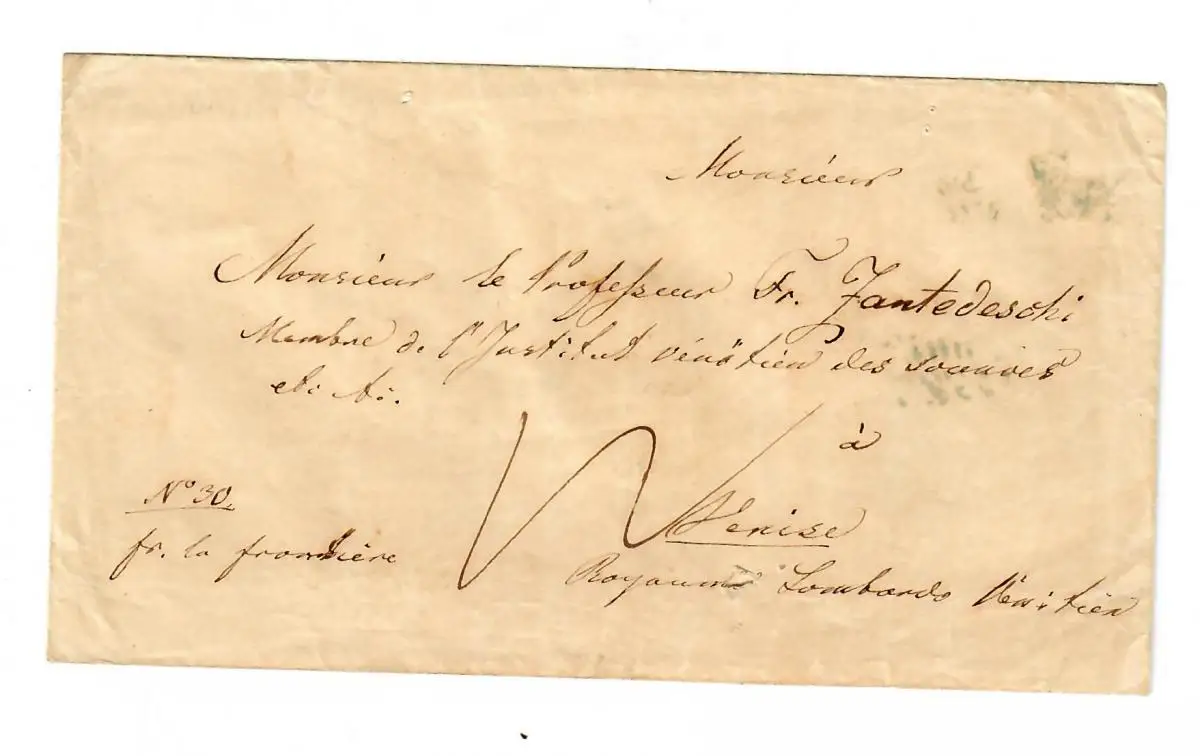 Monsieur
Monsieur le Professeur Fr. Zantedeschi
Membre de l'Institut vénätien des sciences
etc. etc.
à
Venise
Royaume Lombardo Vénitien
Nº 30.
fr. la frontière